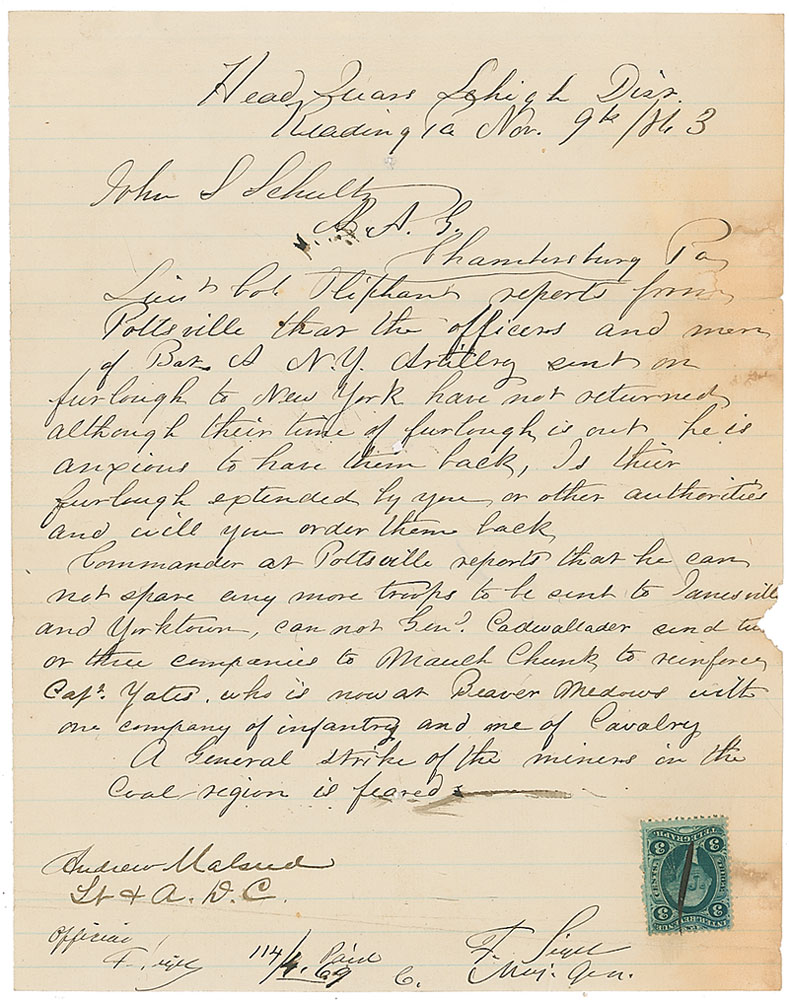 Head Quars Lehigh Dist.
Reading Pa Nov. 9th /863
John S Schultz
A. A. G.
Chambersburg Pa
Lieut Col. Oliphant reports from
Pottsville that the officers and men
of Bat. A N.Y. Artillry sent on
furlough to New York have not returned
although their time of furlough is out he is
anxious to have them back, Is their
furlough extended by you or other authorities
and will you order them back
Commander at Pottsville reports that he can
not spare any more troops to be sent to Janesville
and Yorktown, can not Genl. Cadwallader send two
or three companies to Mauch Chunk to reinforce
Capt. Yates. who is now at Beaver Medows with
one company of infantry and one of Cavalry
A General strike of the miners in the
Coal region is feared
Andrew
Lt & A. D. C.
F. Sigel
Maj. Gen.
Official
F. Sigel
114/4.69 Paid
C.
INTER. REVENUE
3 3
CENTS
THREE
TELEGRAPH
3 3